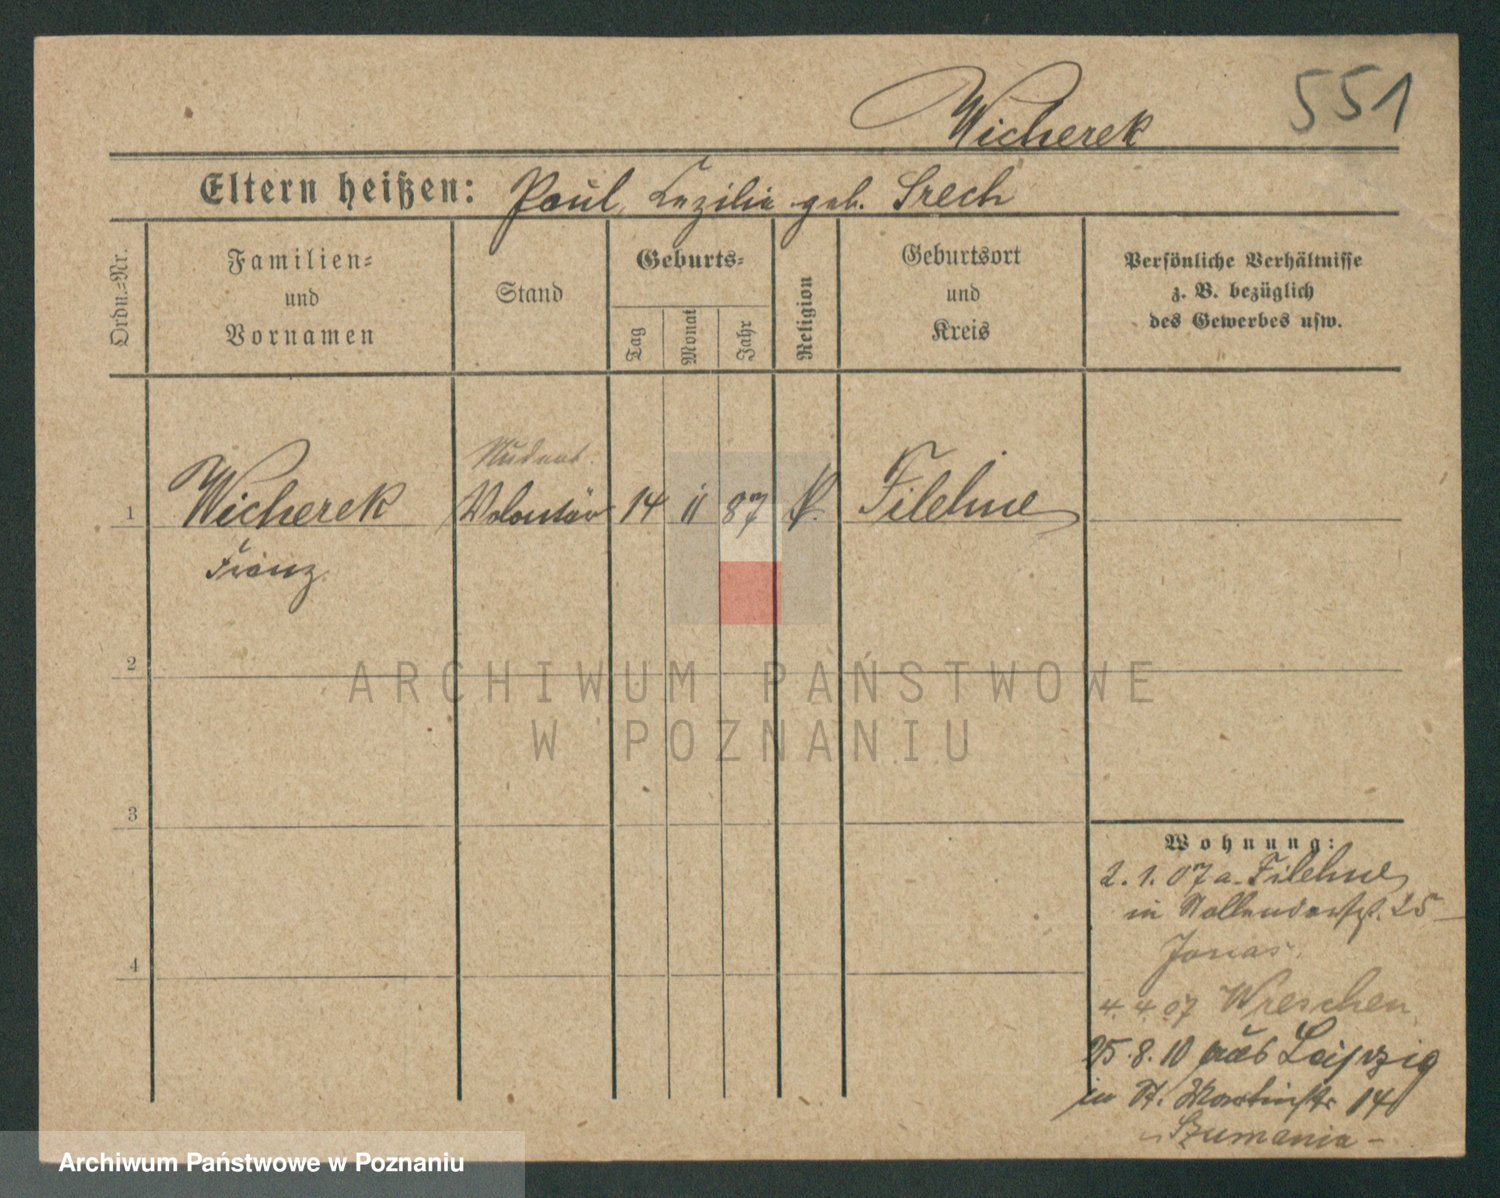 551
Wicherek
Eltern heißen: Paul, Cezilia geb. Srech
Ordn.=Nr.
Familien=
und
Vornamen
Stand
Geburts=
Tag
Monat
Jahr
Religion
Geburtsort
und
Kreis
Persönliche Verhältnisse
z. B. bezüglich
des Gewerbes usw.
Student.
1 Wicherek Volontär 14 11 87 K. Filehne
Franz
2
3
4
ARCHIWUM PAŃSTWOWE
W POZNANIU
Wohnung:
2.1.07 a. Filehne
in Nollendorfst. 25
Jonas.
4.4.07 Wreschen
25.8.10 aus Leipzig
in St. Martinstr 14
Szumania
Archiwum Państwowe w Poznaniu